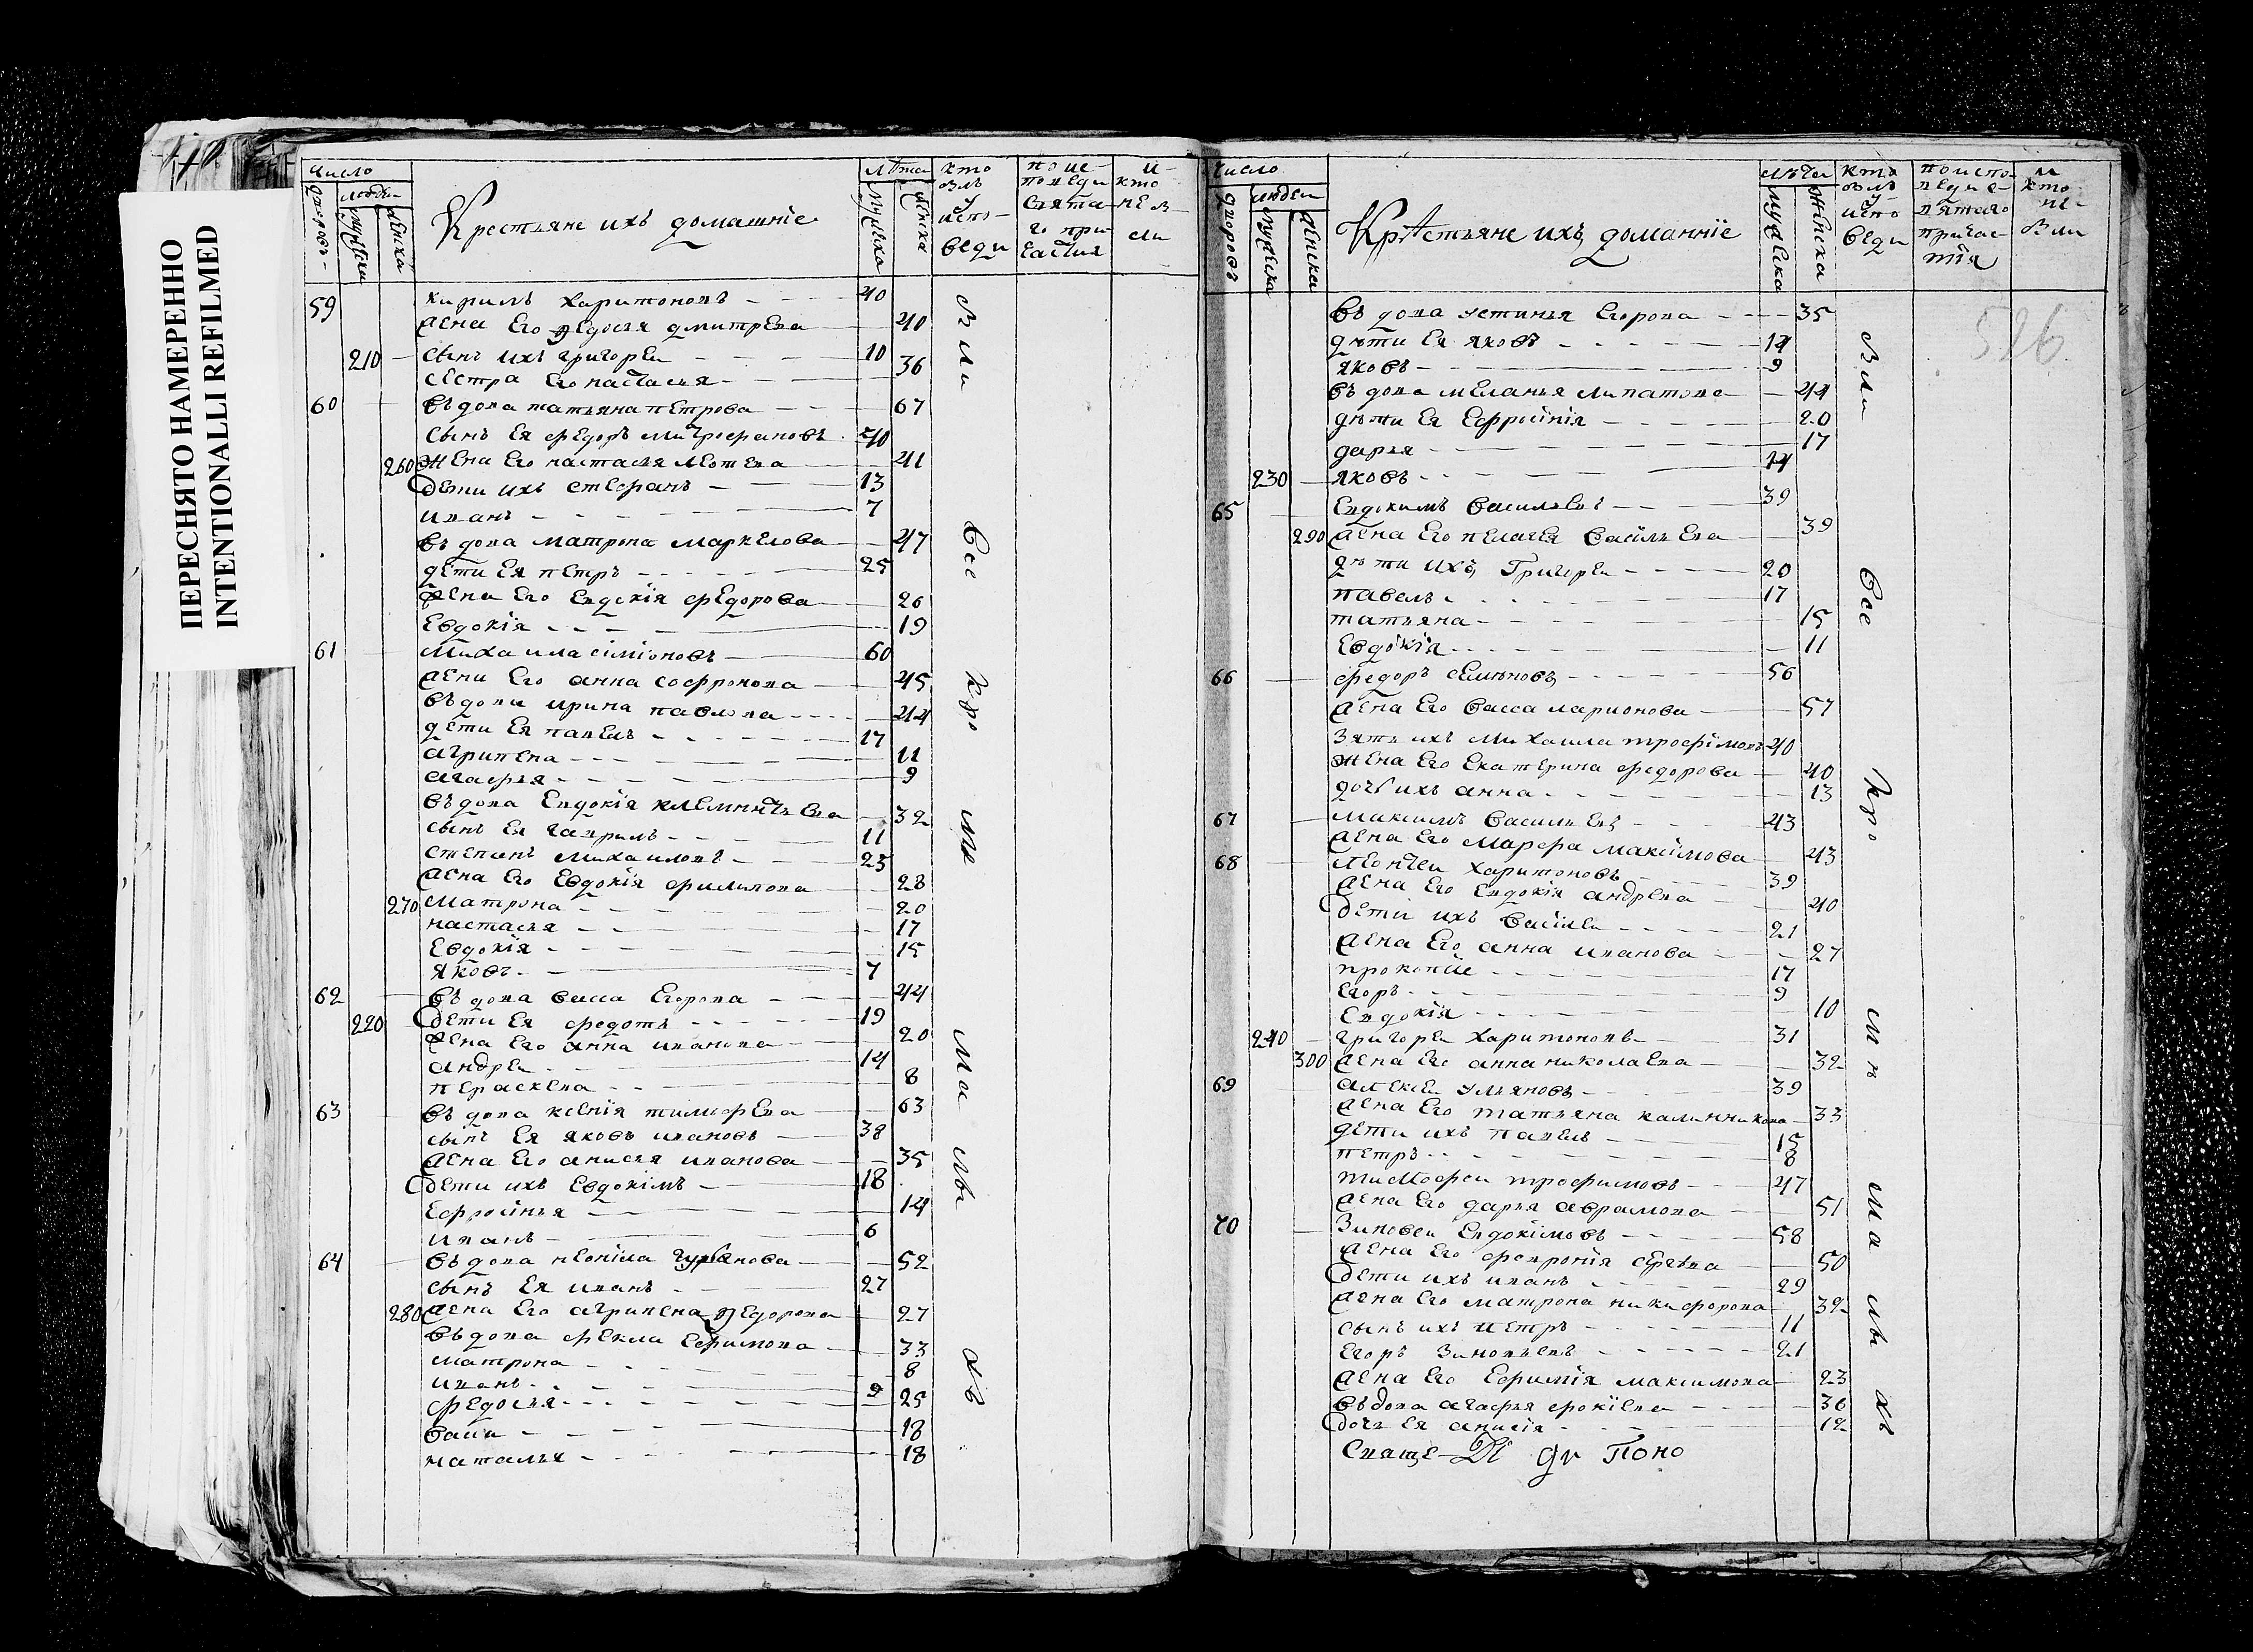 ПЕРЕСНЯТО НАМЕРЕННО
INTENTIONALLI REFILMED
число
людеи
Крестьяне ихъ домашнїе
лѣта
кто
былъ
у
испо-
веди
по ис-
поведи
свята-
го при-
частия
и
кто
не в-
ли
59 кирилъ харитоновъ 40
жена его федосья дмитрева 40
210 сынъ ихъ григореи 10
сестра его настасья 36
60 въдова татьяна петрова 67
сынъ ея федоръ митрофановъ 40
260 жена его настасья 41
дети ихъ стефанъ 13
иванъ 7
въдова матрона маркелова 47
дети ея петръ 25
жена его евдокїя федорова 26
Евдокїя 19
61 михаила сїмїоновъ 60
жена его анна софронова 45
въдова ирина павлова 44
дети ея павелъ 17
агрипена 11
агафья 9
въдова Евдокїя клементьева 32
сынъ ея гаврилъ 11
степанъ михаиловъ 25
жена его Евдокїя филипова 28
270 матрона 20
настасья 17
Евдокїя 15
яковъ 7
62 въдова васса Егорова 44
220 дети ея федотъ 19
жена его анна иванова 20
андреи 14
пераскева 8
63 въдова ксенїя тимофева 63
сынъ ея яковъ ивановъ 38
жена его анисья иванова 35
дети ихъ Евдокїмъ 18
Ефросїнья 14
иванъ 6
64 въдова неонїла 52
сынъ ея иванъ 27
280 жена его агрипена федорова 27
въдова фекла Ефимова 33
матрона 8
иванъ 9
федосья 25
18
наталья 18
вли
все
кро
мѣ
ма
лы
хъ
число
дворовъ
людеи
мужеска
женска
Крѣстьяне ихъ домашнїе
лѣта
мужеска
женска
кто
былъ
у
испо
веди
по испо
веди с
вятаго
причас
тїя
и
кто
не
вли
526
въдова устинья Егорова 35
дѣти ея яковъ 14
яковъ 9
въдова меланья липатова 44
дѣти ея Ефросїнїя 20
дарья 17
230 яковъ 14
65 Евдокимъ васильевъ 39
290 жена его пелагея васїльева 39
дѣти ихъ Григореи 20
павелъ 17
татьяна 15
Евдокїя 11
66 федоръ семѣновъ 56
жена его васса ларионова 57
зять ихъ михаила трофїмовъ 40
жена его Екатерина федорова 40
дочь ихъ анна 13
67 максимъ васильевъ 43
жена его марфа максїмова 43
68 леонтеи харитоновъ 39
жена его Евдокїя андрева 40
дети ихъ васїлеи 21
жена его анна иванова 27
прокопїе 17
Егоръ 9
Евдокїя 10
240 григореи харитоновъ 31
300 жена его анна николаева 32
69 алексеи ульяновъ 39
жена его татьяна калинникова 33
дети ихъ павелъ 15
петръ 8
тимофеи трофимовъ 47
жена его дарья аврамова 51
70 Зиновеи Евдокїмовъ 58
жена его февронїя сергѣва 50
дети ихъ иванъ 29
жена его матрона никифорова 32
сынъ ихъ петръ 11
Егоръ Зиновьевъ 21
жена его Ефимїя максимова 23
въдова агафья фокїева 36
дочь ея анисїя 12
Свяще-
вли
все
кро
мѣ
ма
лы
хъ